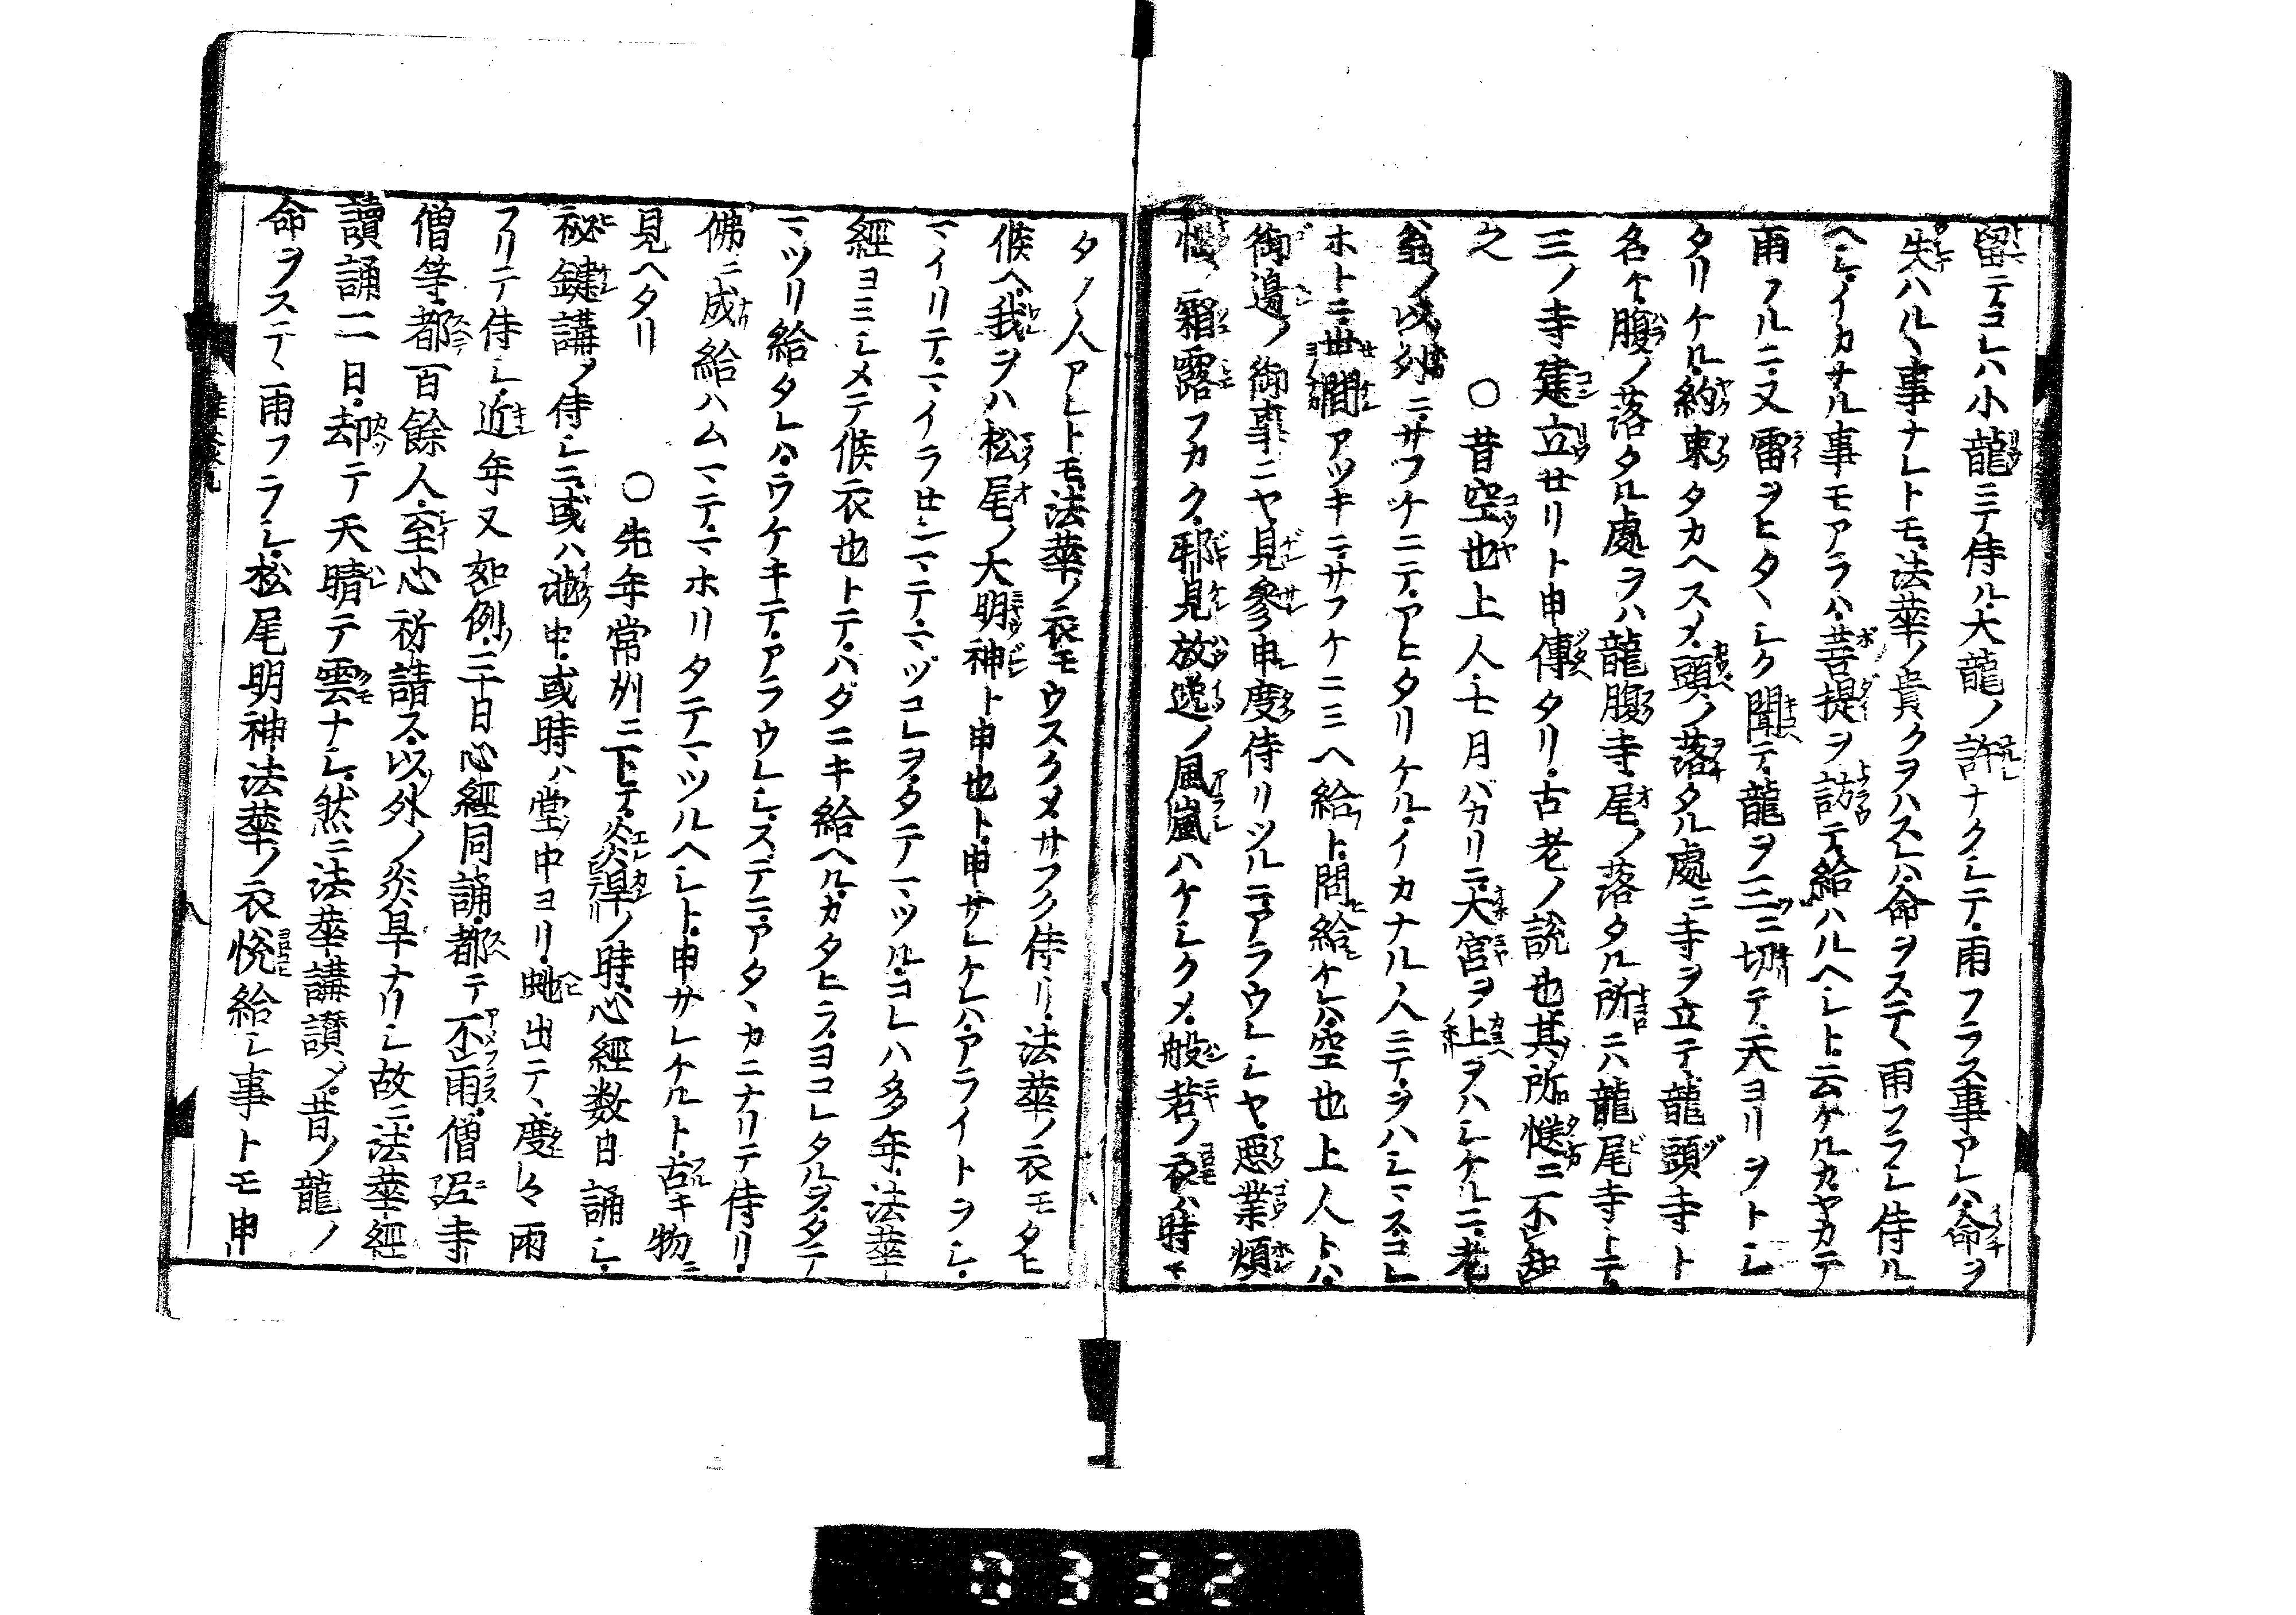 留テ.コレハ小龍ニテ侍ル.大龍ノ許ナクシテ.雨フラス事アレハ.命ヲ
失ハルヽ事ナレトモ.法華ノ貴クヲハスレハ.命ヲステヽ雨フラシ侍ル
ヘシ.イカサル事モアラハ.菩提ヲ訪テ給ハルヘシト.云ケルカ.ヤカテ
雨フルニ.又雷ヲヒタヽシク聞テ.龍ヲ三ニ切テ.天ヨリヲトシ
タリケル.約束タカヘスメ.頭ノ落タル處ニ寺ヲ立テ.龍頭寺ト
名ケ.腹ノ落タル處ヲハ龍腹寺.尾ノ落タル所ニハ龍尾寺トテ.
三ノ寺建立セリト申傳タリ.古老ノ說也.其所慥ニ不知
之　〇昔空也上人.七月バカリニ.大宮ヲ上ヲハシケルニ.老
翁ノ以外ニ.サフケニテ.アヒタリケル.イカナル人ニテ.ヲハシマス.コレ
ホトニ.世間アツキニ.サフケニミヘ給ト.問給ケレハ.空也上人トハ.
御邊ノ御事ニヤ.見參申度侍リツルニ.アラウレシヤ.惡業煩
惱ノ霜露フカク.邪見放逸ノ風嵐ハケシクメ.般若ノ衣ハ時々
タノ人アレトモ.法華ノ衣モウスクメ.サフク侍リ.法華ノ衣モタヒ
候ヘ.我ヲハ松尾ノ大明神ト申也ト.申サレケレハ.アライトヲシ.
マイリテ.マイラセンマテ.マヅコレヲ.タテマツル.コレハ多年.法華
經ヨミシメテ候衣也トテ.ハダニキ給ヘル.カタヒラ.ヨコレタルヲ.タテ
マツリ給タレハ.ウケキテ.アラウレシ.スデニ.アタヽカニナリテ侍リ.
佛ニ成給ハムマテ.マホリタテマツルヘシト.申サレケルト.古キ物ニ
見ヘタリ　〇先年常州ニ下テ.炎旱ノ時.心經数日誦シ.
祕鍵講メ侍シニ.或ハ池中.或時ハ堂中ヨリ.虵出テ.度々雨
フリテ侍シ.近年又如例.三十日心經同誦.都テ不雨.僧尼寺
僧等.都百餘人.至心祈請ス.以外ノ炎旱ナリシ故ニ.法華經
讀誦二日.却テ天晴テ雲ナシ.然ニ法華講讃メ.昔ノ龍ノ
命ヲステヽ雨フラシ.松尾明神.法華ノ衣悅給シ事トモ申
八
0332